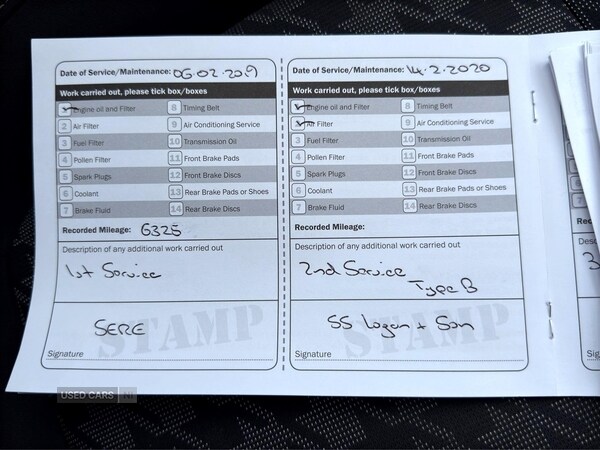 Date of Service/Maintenance: 06.02.2019
Work carried out, please tick box/boxes
Engine oil and Filter
8 Timing Belt
2 Air Filter
9 Air Conditioning Service
3 Fuel Filter
10 Transmission Oil
4 Pollen Filter
11 Front Brake Pads
5 Spark Plugs
12 Front Brake Discs
6 Coolant
13 Rear Brake Pads or Shoes
7 Brake Fluid
14 Rear Brake Discs
Recorded Mileage: 6325
Description of any additional work carried out
1st Service
SERE
STAMP
Signature
Date of Service/Maintenance: 14.2.2020
Work carried out, please tick box/boxes
Engine oil and Filter
8 Timing Belt
Air Filter
9 Air Conditioning Service
3 Fuel Filter
10 Transmission Oil
4 Pollen Filter
11 Front Brake Pads
5 Spark Plugs
12 Front Brake Discs
6 Coolant
13 Rear Brake Pads or Shoes
7 Brake Fluid
14 Rear Brake Discs
Recorded Mileage:
Description of any additional work carried out
2nd Service
Type B
SS Logan + Son
STAMP
Signature
Rec
Desc
3
Sig
USED CARS NI